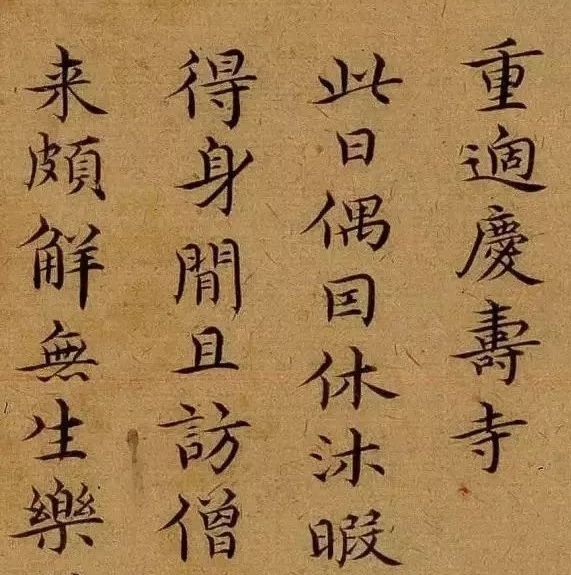 重適慶壽寺
此日偶囙休沐暇
得身閒且訪僧
来頗解無生樂